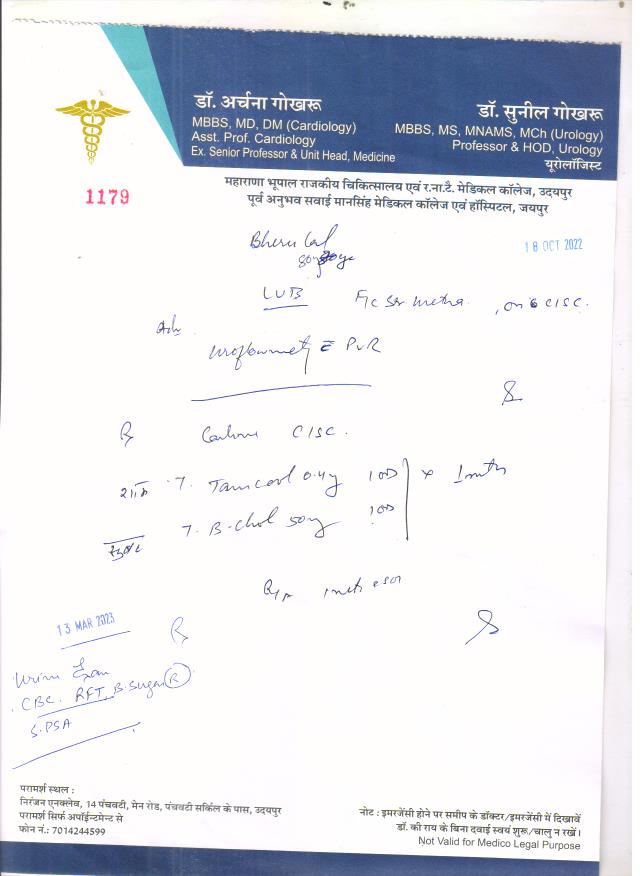 डॉ. अर्चना गोखरू
MBBS, MD, DM (Cardiology)
Asst. Prof. Cardiology
Ex. Senior Professor & Unit Head, Medicine
डॉ. सुनील गोखरू
MBBS, MS, MNAMS, MCh (Urology)
Professor & HOD, Urology
यूरोलॉजिस्ट
महाराणा भूपाल राजकीय चिकित्सालय एवं र.ना.टै. मेडिकल कॉलेज, उदयपुर
पूर्व अनुभव सवाई मानसिंह मेडिकल कॉलेज एवं हॉस्पिटल, जयपुर
1179
18 OCT 2022
Bheru Lal
F/c , on CISC.
Adv
uroflowmetry c̄ PVR
CISC.
T. 0.4 1OD x 1 mth
T. B-Chol 1OD
13 MAR 2023
Urine Exam
CBC. RFT, B. Sugar (R)
S. PSA
परामर्श स्थल :
निरंजन एनक्लेव, 14 पंचवटी, मेन रोड, पंचवटी सर्किल के पास, उदयपुर
परामर्श सिर्फ अपॉईन्टमेन्ट से
फोन नं.: 7014244599
नोट : इमरजेंसी होने पर समीप के डॉक्टर/इमरजेंसी में दिखावें
डॉ. की राय के बिना दवाई स्वयं शुरू/चालु न रखें।
Not Valid for Medico Legal Purpose